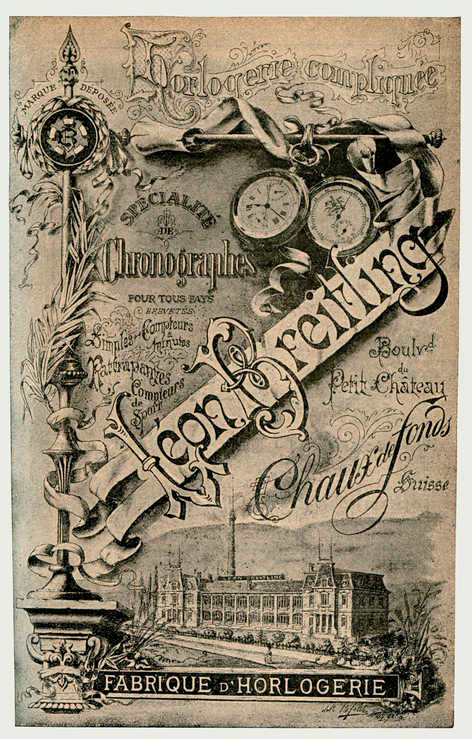 Horlogerie compliquée
MARQUE DÉPOSÉE
B
SPÉCIALITÉ
DE
Chronographes
POUR TOUS PAYS
BREVETÉS
Simples & Compteurs
minutes
Rattrapantes
Compteurs
de
Sport
Léon Breitling
Boulvd
du
Petit-Château
Chaux de fonds
Suisse
LÉON BREITLING
FABRIQUE D'HORLOGERIE